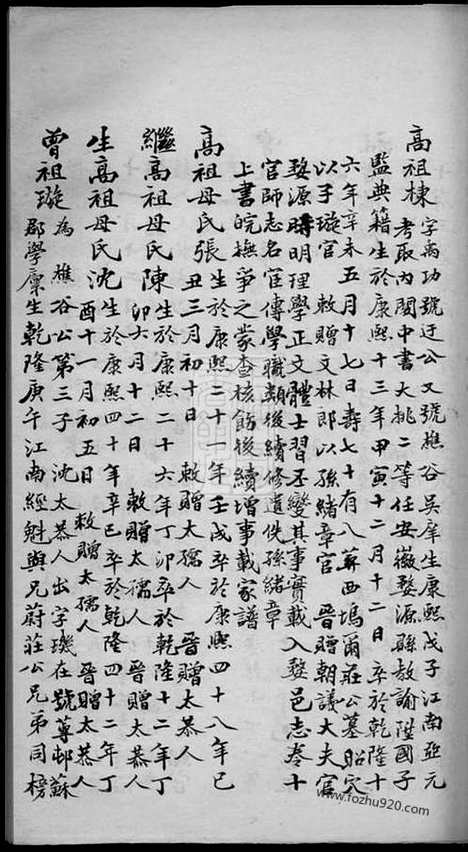 高祖棟 字禹功號迂公又號樵谷吳庠生康熙戊子江南亞元
考取內閣中書大挑二等任安徽婺源縣教諭陞國子
監典籍生於康熙十三年甲寅十二月十二日卒於乾隆十
六年辛未五月十七日壽七十有八葬西塢爾莊公墓昭穴
以子璇官 敕贈文林郎以孫緒章官 晉贈朝議大夫官
婺源時明理學正文體士習丕變其事實載入婺邑志卷十
官師志名宦傳學職類後續修遺佚孫緒章
上書皖撫爭之蒙查核飭後續增事載家譜
高祖母氏張 生於康熙二十一年壬戌卒於康熙四十八年己
丑三月初十日 敕贈太孺人 晉贈太恭人
繼高祖母氏陳 生於康熙二十六年丁卯卒於乾隆十二年丁
卯六月十二日 敕贈太孺人 晉贈太恭人
生高祖母氏沈 生於康熙四十年辛巳卒於乾隆四十二年丁
酉十一月初五日 敕贈太孺人 晉贈太恭人
曾祖璇 為樵谷公第三子 沈太恭人出字璣在號蓴邨蘇
郡學廩生乾隆庚午江南經魁與兄蔚莊公兄弟同榜
www.fozhu920.com